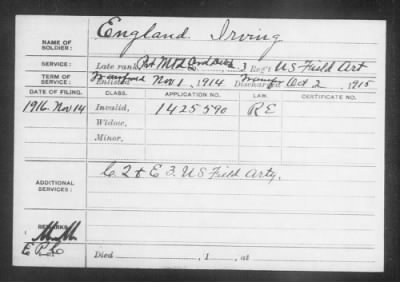 NAME OF
SOLDIER: England Irving
SERVICE: Late rank, Pvt 3 Reg't US Field Art
TERM OF
SERVICE: Enlisted Nov 1, 1914 Discharged Oct 2, 1915
DATE OF FILING. CLASS. APPLICATION NO. LAW. CERTIFICATE NO.
1916. Nov 14 Invalid, 1425590 RE
Widow,
Minor,
ADDITIONAL
SERVICES: C. 2 & E 3. US Field Arty.
REMARKS:
Died , 1 , at